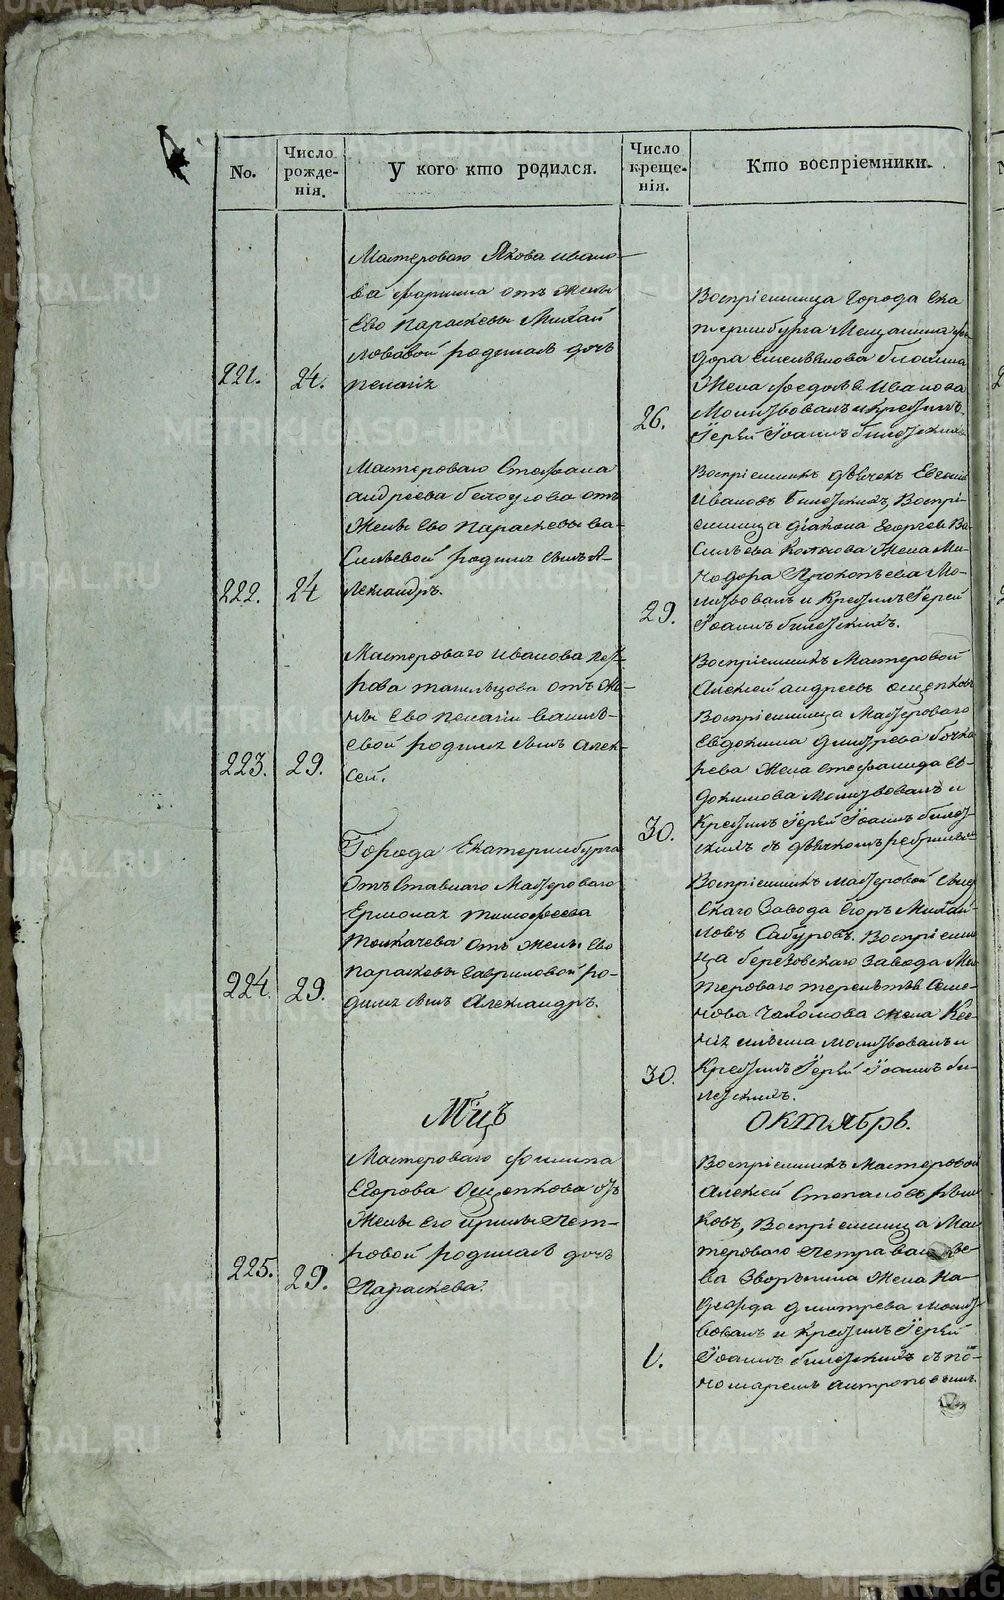 No.
Число рожде-
нія.
У кого кто родился.
Число креще-
нія.
Кто воспріемники.
221.
24.
Мастероваго Якова Ивано-
ва отъ жены
Ево параскевы Михай
ловой родилась дочь
пелагія
26.
Воспріемница города Ека
теринбурга Мещанина фе
дора
Жена федосья Иванова
Молитвовалъ и Крестилъ
Іерей Іоаннъ
222.
24
Мастероваго Стефана
андреева белоусова отъ
Жены Ево параскевы ва-
сильевой родился сынъ А-
лександръ.
29.
Воспріемникъ дьячекъ Евгеній
Ивановъ Воспрі-
емница діакона Георгія Ва
сильева Жена Ми-
нодора Прокопьева Мо-
литвовалъ и Крестилъ Іерей
Іоаннъ
223.
29.
Мастероваго иванова пет-
рова тагильцова отъ Же-
ны Ево пелагіи василь-
евой родился сынъ алек-
сей.
30.
Воспріемникъ Мастеровой
Алексей андреевъ ощепковъ
Воспріемница Мастероваго
Евдокима дмитрева бочка
рева Жена стефанида Ев-
докимова Молитвовалъ и
Крестилъ Іерей Іоаннъ
съ дьячкомъ
224.
29.
Города Екатеринбурга
Отъ Ставнаго Мастероваго
Ермолая тимофеева
толкачева отъ жены Ево
параскевы гавриловой ро-
дился сынъ Александръ.
30.
Воспріемникъ Мастеровой
скаго Завода Егоръ Михай-
ловъ Сабуровъ. Воспріемни
ца березовскаго завода Мас
тероваго терентья Семе-
нова жена Ксе-
нія ильина молитвовалъ и
Крестилъ Іерей Іоаннъ
Мцъ
ОКТЯБРЬ.
225.
29.
Мастероваго филипа
Егорова Ощепкова отъ
Жены Его ирины Пет-
ровой родилась дочь
Параскева.
1.
Воспріемникъ Мастеровой
Алексей Степановъ
ковъ, Воспріемница Мас
тероваго Петра
ва Зворыгина Жена
дмитрева молит
вовалъ и Крестилъ Іерей
Іоаннъ съ по-
номаремъ антроповымъ.
METRIKI.GASO-URAL.RU